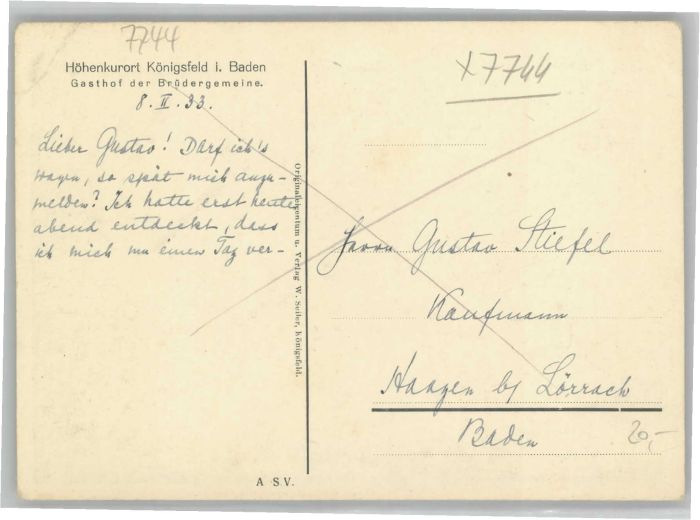 7744
Höhenkurort Königsfeld i. Baden
Gasthof der Brüdergemeine.
8. II. 33.
Lieber Gustav! Darf ich's
wagen, so spät mich anzu-
melden? Ich hatte erst heute
abend entdeckt, dass
ich mich um einen Tag ver-
Originaleigentum u. Verlag W. Seiler, Königsfeld.
A S.V.
x7744
Herrn Gustav Stiefel
Kaufmann
Haagen b/ Lörrach
Baden
20,-